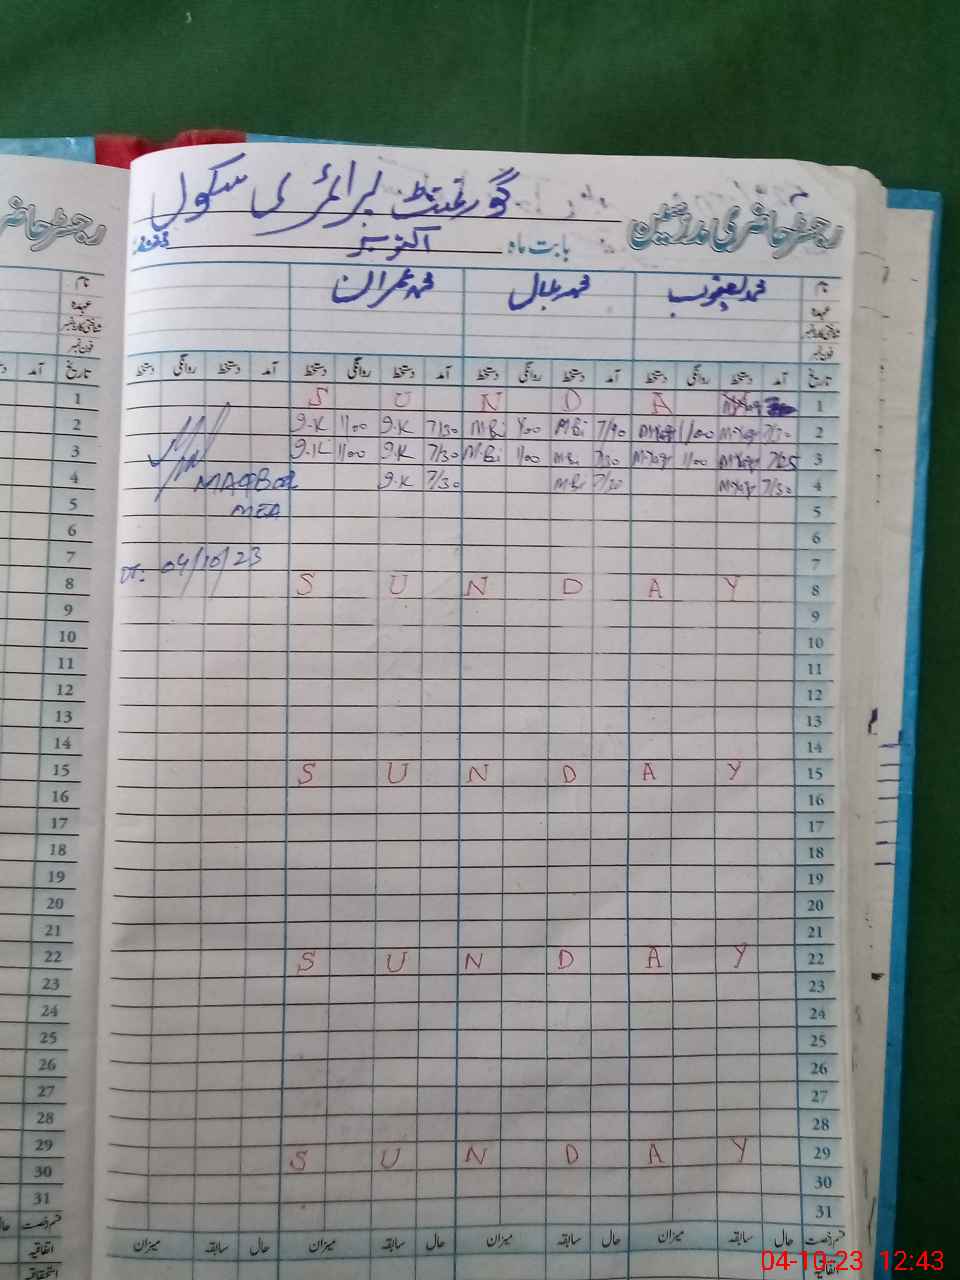 رجسٹر حاضری مدرسین
گورنمنٹ پرائمری سکول
بابت ماہ اکتوبر 2023
نام محمد یعقوب محمد بلال محمد عمران
عہدہ
شناختی کارڈ نمبر
فون نمبر
تاریخ آمد دستخط روانگی دستخط آمد دستخط روانگی دستخط آمد دستخط روانگی دستخط آمد دستخط روانگی دستخط
1 S U N D A
2 7/30 M.Yaqr 1/00 M.Yaqr 7/30 M.Bi 1/00 M.Bi 7/30 I.K 1/00 I.K
3 7/25 M.Yaqr 1/00 M.Yaqr 7/30 M.Bi 1/00 M.Bi 7/30 I.K 1/00 I.K
4 M.Yaqr 7/30 M.Bi 7/30 I.K 7/30
MAQBOOL
5
MEA
6
7
DT: 04/10/23
8 S U N D A Y
9
10
11
12
13
14
15 S U N D A Y
16
17
18
19
20
21
22 S U N D A Y
23
24
25
26
27
28
29 S U N D A Y
30
31
قسم رخصت حال سابقہ میزان حال سابقہ میزان حال سابقہ میزان حال سابقہ میزان
اتفاقیہ
رجسٹر حاضر
نام
عہدہ
شناختی کارڈ نمبر
فون نمبر
تاریخ آمد
1
2
3
4
5
6
7
8
9
10
11
12
13
14
15
16
17
18
19
20
21
22
23
24
25
26
27
28
29
30
31
قسم رخصت حال
اتفاقیہ
استحقاقیہ
04-10-23 12:43